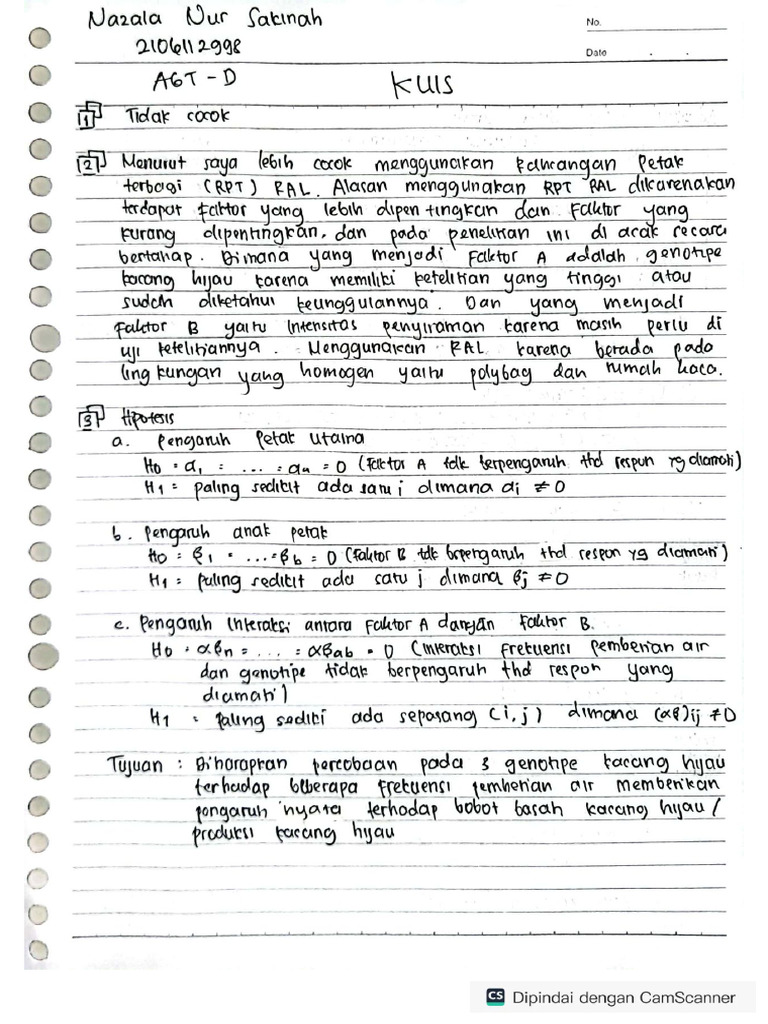 Nazala Nur Sakinah
2106112998
AGT-D
No.
Date . .
KUIS
1 Tidak cocok
2 Menurut saya lebih cocok menggunakan Rancangan Petak
terbagi (RPT) RAL. Alasan menggunakan RPT RAL dikarenakan
terdapat Faktor yang lebih dipentingkan dan Faktor yang
kurang dipentingkan, dan pada penelitian ini di acak secara
bertahap. Dimana yang menjadi Faktor A adalah genotipe
kacang hijau karena memiliki ketelitian yang tinggi atau
sudah diketahui keunggulannya. Dan yang menjadi
Faktor B yaitu Intensitas penyiraman karena masih perlu di
uji ketelitiannya. Menggunakan RAL karena berada pada
lingkungan yang homogen yaitu polybag dan rumah kaca.
3 Hipotesis
a. Pengaruh Petak Utama
H0 = α1 = ... = αn = 0 (Faktor A tdk berpengaruh thd respun yg diamati)
H1 = paling sedikit ada satu i dimana αi ≠ 0
b. Pengaruh anak petak
H0 = β1 = ... = βb = 0 (Faktor B tdk berpengaruh thd respon yg diamati)
H1 = paling sedikit ada satu j dimana βj ≠ 0
c. Pengaruh Interaksi antara Faktor A dangan Faktor B.
H0 = αβn = ... = αβab = 0 (Interaksi Frekuensi pemberian air
dan genotipe tidak berpengaruh thd respon yang
diamati)
H1 = paling sediki ada sepasang (i,j) dimana (αβ)ij ≠ 0
Tujuan : Diharapkan percobaan pada 3 genotipe kacang hijau
terhadap beberapa Frekuensi pemberian air memberikan
pengaruh nyata terhadap bobot basah kacang hijau /
produksi kacang hijau
CS Dipindai dengan CamScanner